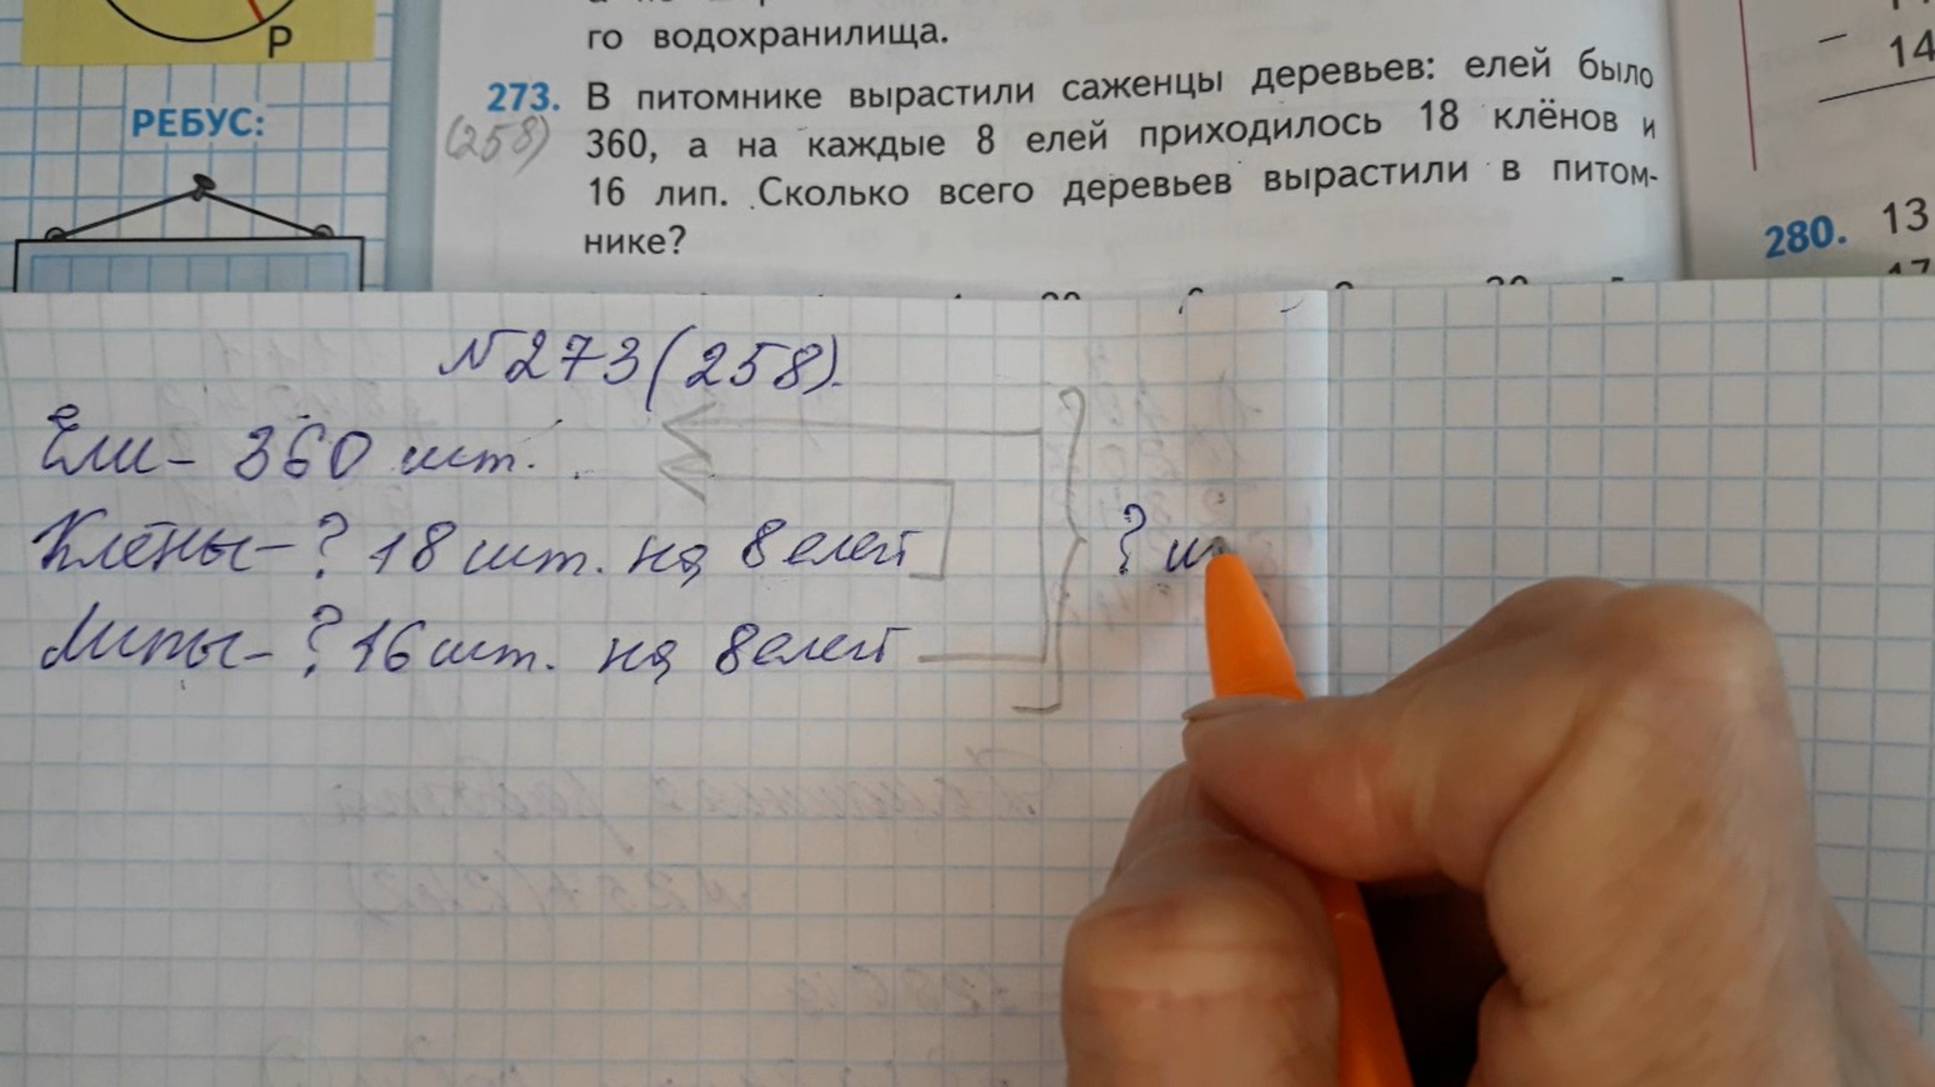 P
РЕБУС:
го водохранилища.
273. В питомнике вырастили саженцы деревьев: елей было
(258) 360, а на каждые 8 елей приходилось 18 клёнов и
16 лип. Сколько всего деревьев вырастили в питом-
нике?
14
280. 13
17
№273(258).
Ели - 360 шт.
Клёны - ? 18 шт. на 8 елей
Липы - ? 16 шт. на 8 елей
? ш